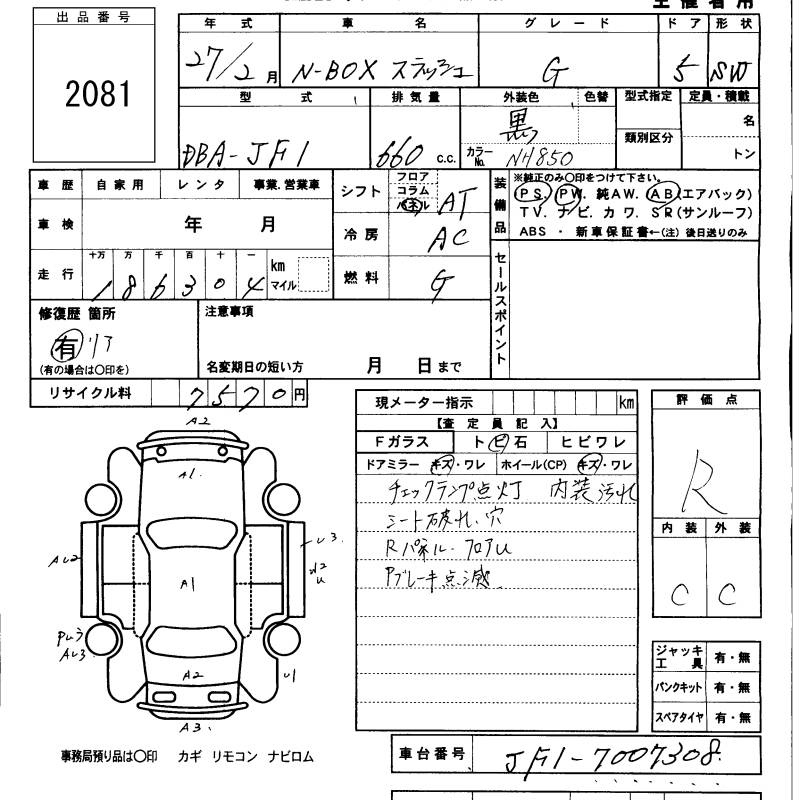 主催者用
出品番号
2081
年式 車名 グレード ドア 形状
27/2月 N-BOX スラッシュ G 5 SW
型式 排気量 外装色 色替 型式指定 定員・積載
DBA-JF1 660 c.c. 黒 カラーNo. NH850 類別区分 名 トン
車歴 自家用 レンタ 事業.営業車
車検 年 月
走行 十万 万 千 百 十 一 km マイル
1 8 6 3 0 4
シフト フロア コラム パネル AT
冷房 AC
燃料 G
装備品
※純正のみ〇印をつけて下さい。
PS. PW. 純AW. AB(エアバック)
TV. ナビ. カワ. SR(サンルーフ)
ABS ・ 新車保証書←(注) 後日送りのみ
セールスポイント
修復歴 箇所
有 リア
(有の場合は〇印を)
注意事項
名変期日の短い方 月 日まで
リサイクル料 7570円
現メーター指示 km
【査定員記入】
Fガラス トビ石 ヒビワレ
ドアミラー キズ・ワレ ホイール(CP) キズ・ワレ
チェックランプ点灯 内装汚れ
シート破れ.穴
Rパネル.フロアU
Pブレーキ点滅
評価点
R
内装 外装
C C
A2
A1
AU2
A1
U3
U
PU3
AU3
A2
U1
A3
ジャッキ工具 有・無
パンクキット 有・無
スペアタイヤ 有・無
事務局預り品は〇印 カギ リモコン ナビロム
車台番号 JF1-7007308